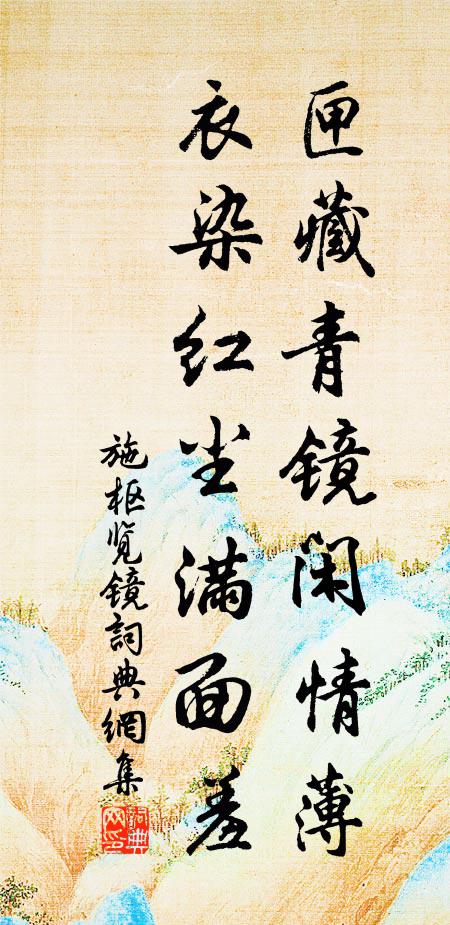 匣藏青镜闲情薄
衣染红尘满面羞
施枢览镜詞典網集
詞典